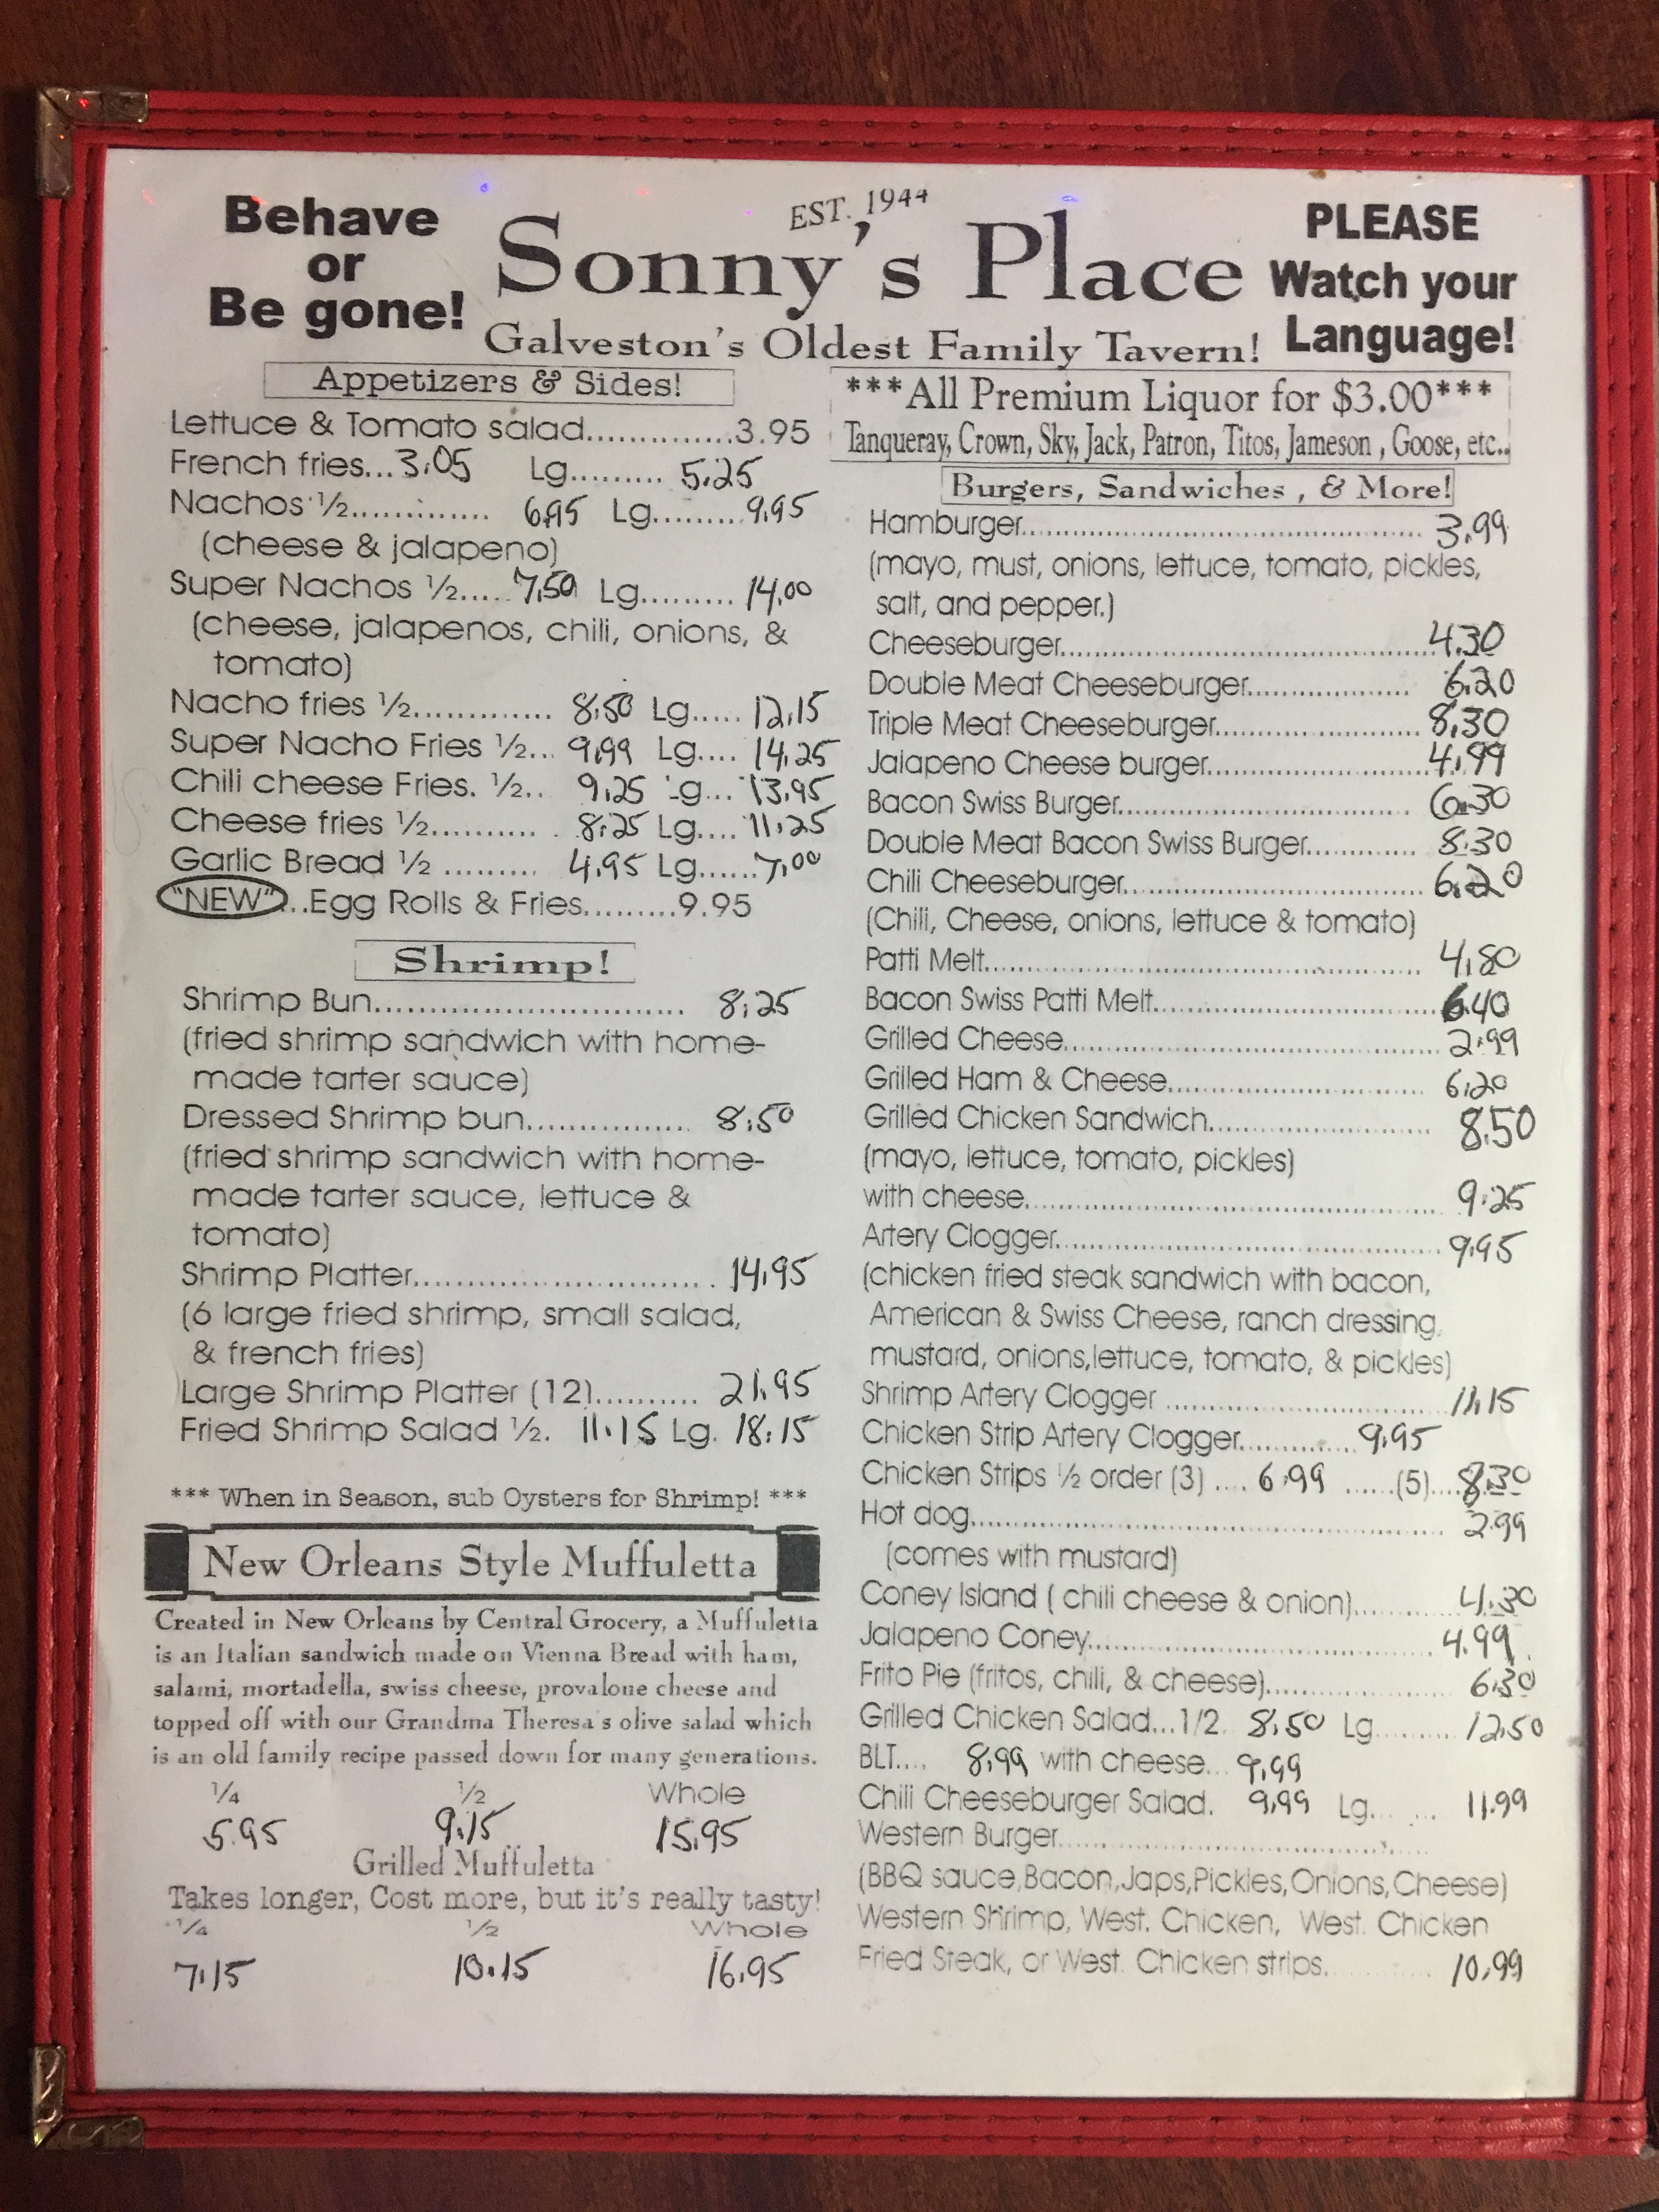 Behave
or
Be gone!
EST. 1944
Sonny's Place
Galveston's Oldest Family Tavern!
PLEASE
Watch your
Language!
Appetizers & Sides!
Lettuce & Tomato salad..............3.95
French fries...3.05 Lg......... 5.25
Nachos ½............. 6.95 Lg.........9.95
(cheese & jalapeno)
Super Nachos ½..... 7.50 Lg......... 14.00
(cheese, jalapenos, chili, onions, &
tomato)
Nacho fries ½............. 8.50 Lg..... 12.15
Super Nacho Fries ½... 9.99 Lg.... 14.25
Chili cheese Fries. ½.. 9.25 Lg... 13.95
Cheese fries ½.......... 8.25 Lg.... 11.25
Garlic Bread ½ ......... 4.95 Lg......7.00
"NEW"...Egg Rolls & Fries.........9.95
Shrimp!
Shrimp Bun............................. 8.25
(fried shrimp sandwich with home-
made tarter sauce)
Dressed Shrimp bun............... 8.50
(fried shrimp sandwich with home-
made tarter sauce, lettuce &
tomato)
Shrimp Platter............................ 14.95
(6 large fried shrimp, small salad,
& french fries)
Large Shrimp Platter (12).......... 21.95
Fried Shrimp Salad ½. 11.15 Lg. 18.15
*** When in Season, sub Oysters for Shrimp! ***
New Orleans Style Muffuletta
Created in New Orleans by Central Grocery, a Muffuletta
is an Italian sandwich made on Vienna Bread with ham,
salami, mortadella, swiss cheese, provalone cheese and
topped off with our Grandma Theresa's olive salad which
is an old family recipe passed down for many generations.
¼ ½ Whole
5.95 9.15 15.95
Grilled Muffuletta
Takes longer, Cost more, but it's really tasty!
¼ ½ Whole
7.15 10.15 16.95
***All Premium Liquor for $3.00***
Tanqueray, Crown, Sky, Jack, Patron, Titos, Jameson , Goose, etc..
Burgers, Sandwiches , & More!
Hamburger........................................ 3.99
(mayo, must, onions, lettuce, tomato, pickles,
salt, and pepper.)
Cheeseburger......................................4.30
Double Meat Cheeseburger................... 6.20
Triple Meat Cheeseburger........................ 8.30
Jalapeno Cheese burger..........................4.99
Bacon Swiss Burger................................ 6.30
Double Meat Bacon Swiss Burger............. 8.30
Chili Cheeseburger................................ 6.20
(Chili, Cheese, onions, lettuce & tomato)
Patti Melt............................................. 4.80
Bacon Swiss Patti Melt..............................6.40
Grilled Cheese....................................... 2.99
Grilled Ham & Cheese........................... 6.20
Grilled Chicken Sandwich........................ 8.50
(mayo, lettuce, tomato, pickles)
with cheese........................................... 9.25
Artery Clogger....................................... 9.95
(chicken fried steak sandwich with bacon,
American & Swiss Cheese, ranch dressing,
mustard, onions,lettuce, tomato, & pickles)
Shrimp Artery Clogger ............................. 11.15
Chicken Strip Artery Clogger............. 9.95
Chicken Strips ½ order (3) .... 6.99 ......(5)....8.30
Hot dog................................................ 2.99
(comes with mustard)
Coney Island ( chili cheese & onion)............ 4.30
Jalapeno Coney.................................... 4.99
Frito Pie (fritos, chili, & cheese).................... 6.30
Grilled Chicken Salad...1/2. 8.50 Lg......... 12.50
BLT.... 8.99 with cheese... 9.99
Chili Cheeseburger Salad. 9.99 Lg.... ... 11.99
Western Burger.........................................
(BBQ sauce,Bacon,Japs,Pickles,Onions,Cheese)
Western Shrimp, West. Chicken, West. Chicken
Fried Steak, or West. Chicken strips............ 10.99